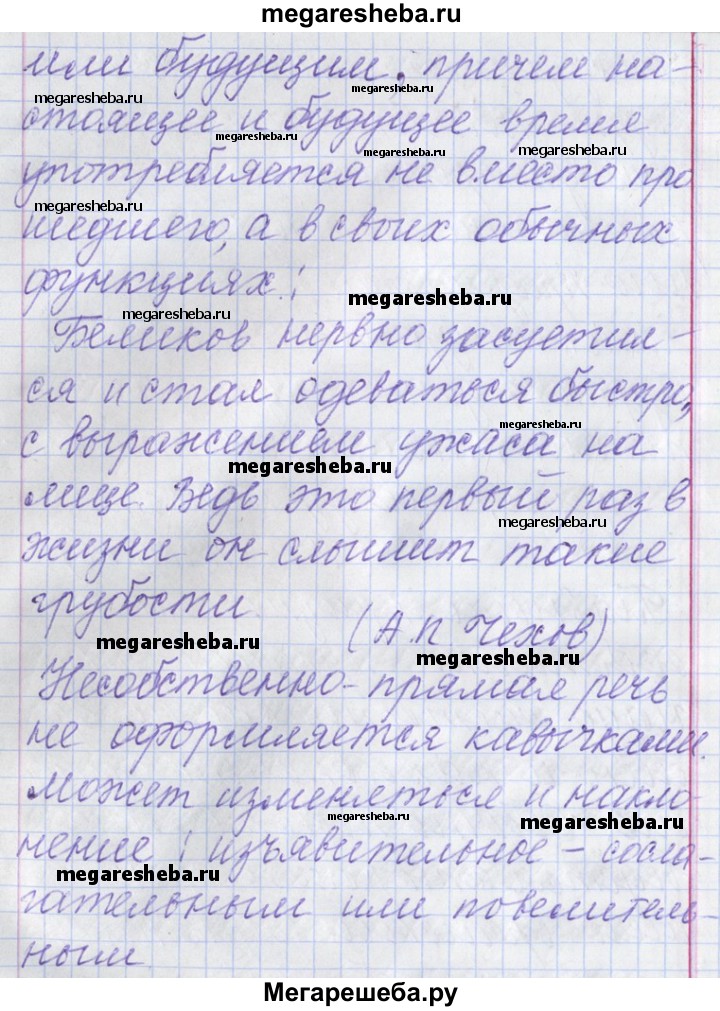 megaresheba.ru
или будущим, причем на-
megaresheba.ru
megaresheba.ru
стоящее и будущее время
megaresheba.ru
megaresheba.ru
megaresheba.ru
употребляется не вместо про
megaresheba.ru
шедшего, а в своих обычных
функциях:
megaresheba.ru
megaresheba.ru
Беликов нервно засуетил-
megaresheba.ru
ся и стал одеваться быстро,
megaresheba.ru
с выражением ужаса на
megaresheba.ru
лице. Ведь это первый раз в
megaresheba.ru
megaresheba.ru
жизни он слышит такие
грубости.
(А.П. Чехов)
megaresheba.ru
megaresheba.ru
Несобственно-прямая речь
не оформляется кавычками.
Может изменяться и накло-
megaresheba.ru
megaresheba.ru
нение: изъявительное – сосла-
megaresheba.ru
гательным или повелитель-
ным.
Мегарешеба.ру